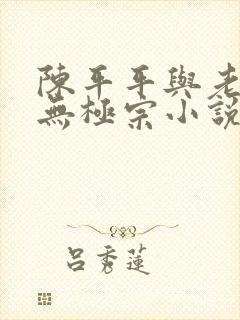 陳平平與老
無極宗小說
呂秀蓮